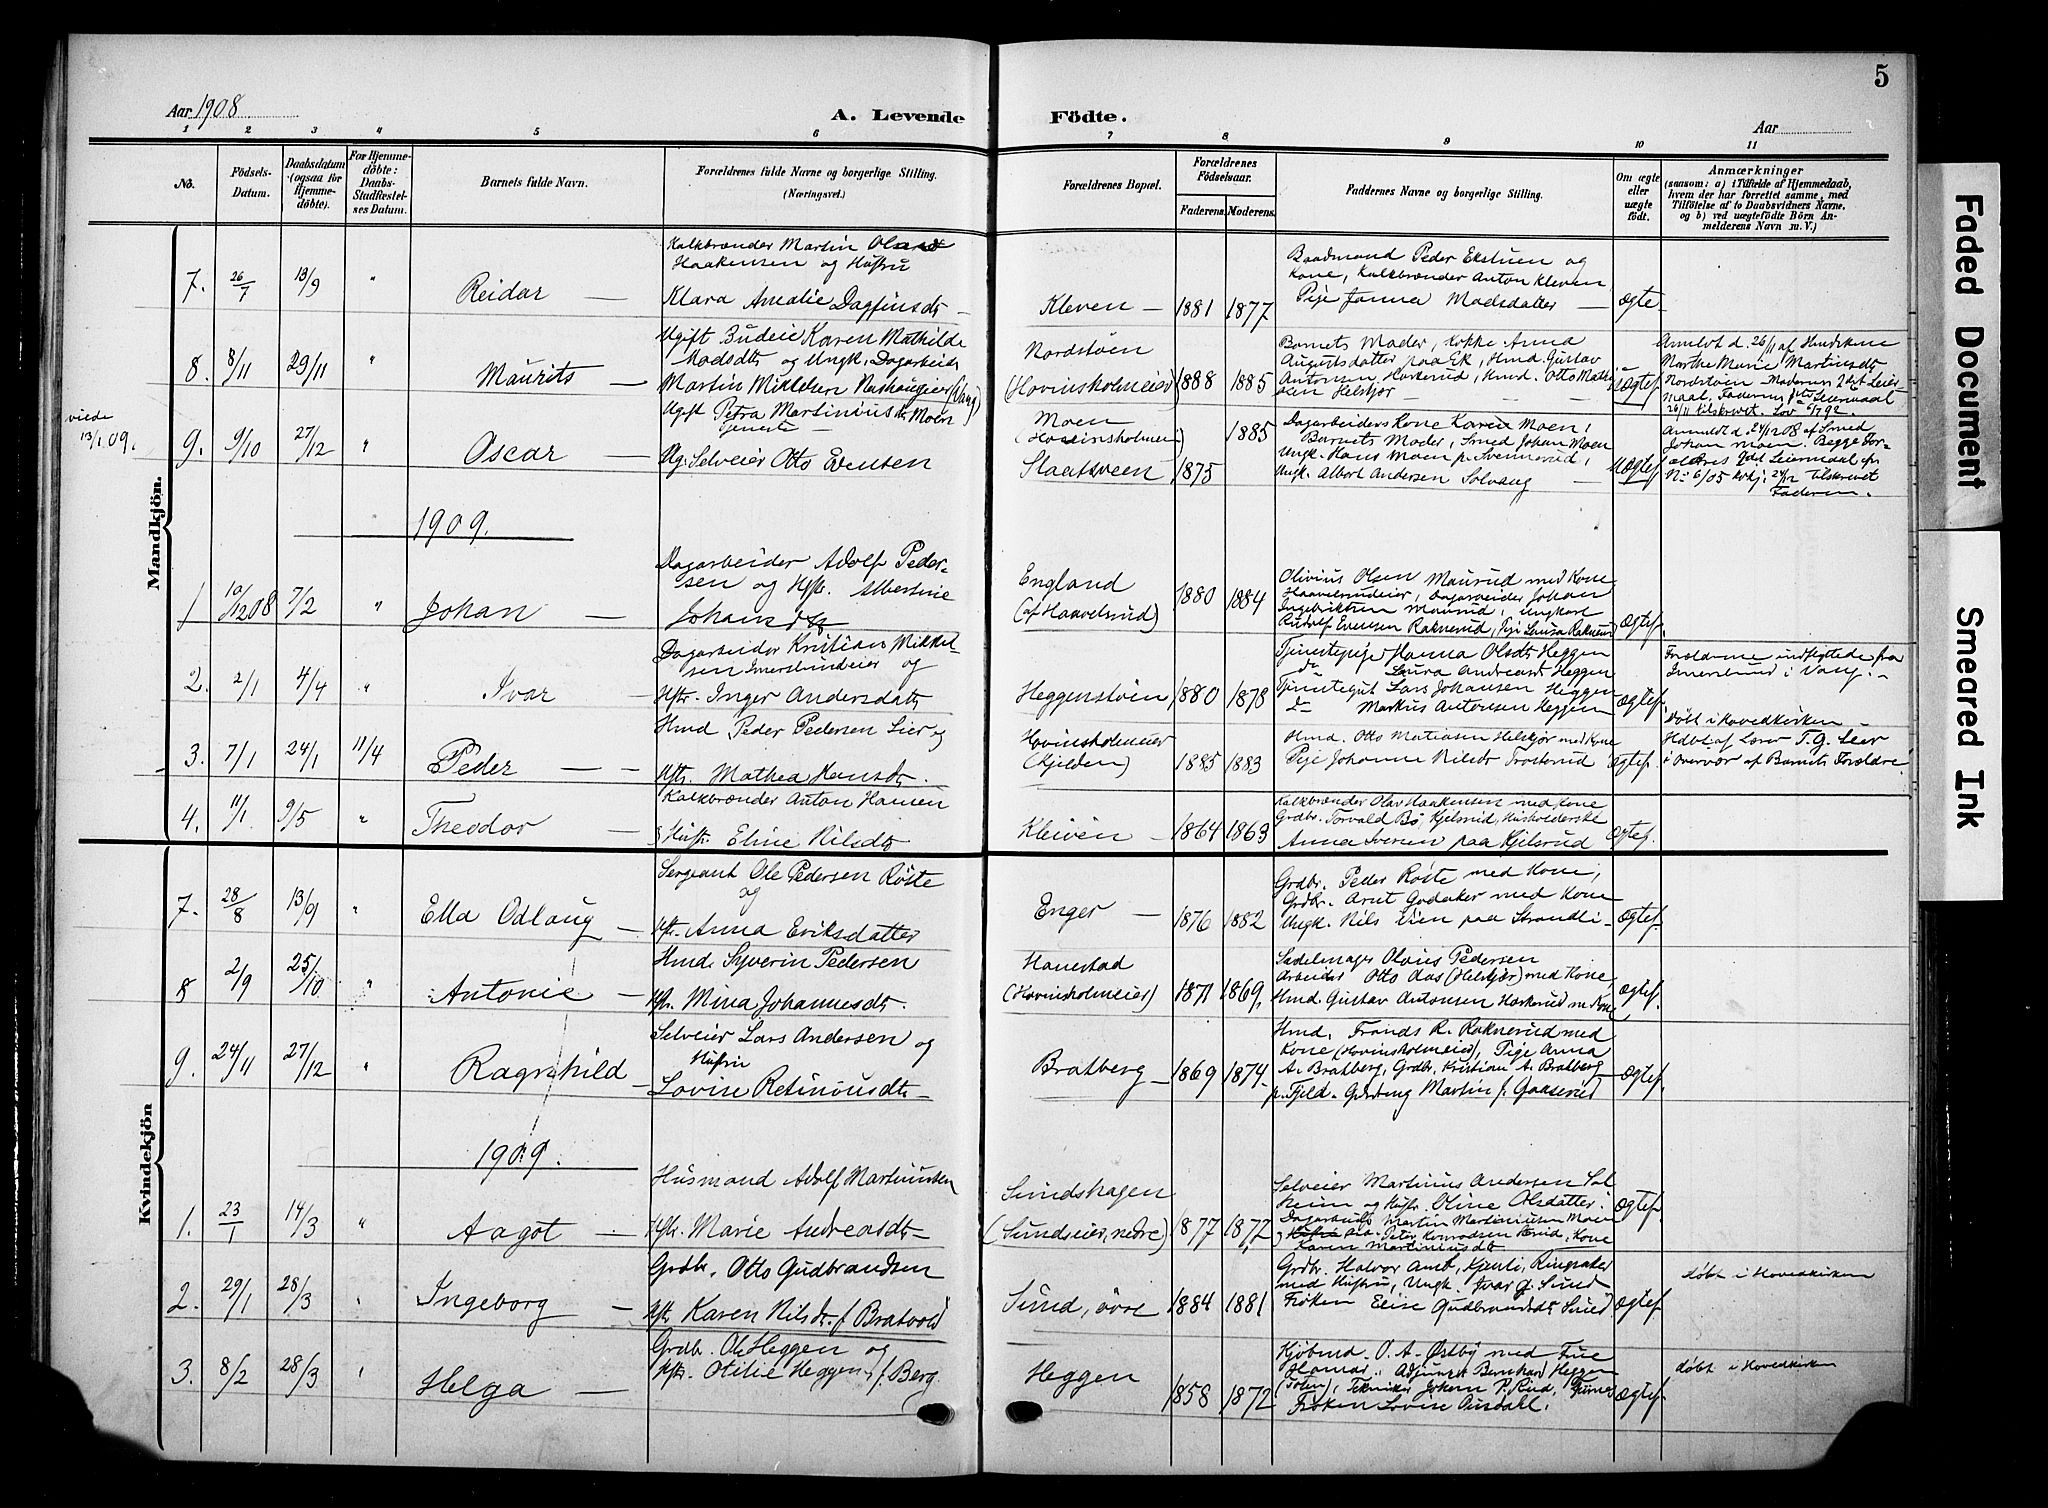 5
Aar 1908
A. Levende Födte.
Aar
1 2 3 4 5 6 7 8 9 10 11
No.
Födsels-Datum.
Daabsdatum (ogsaa for Hjemmedöbte).
For Hjemmedöbte: Daabs-Stadfæstelses Datum.
Barnets fulde Navn.
Forældrenes fulde Navne og borgerlige Stilling. (Næringsvei.)
Forældrenes Bopæl.
Forældrenes Födselsaar.
Faderens.
Moderens.
Faddernes Navne og borgerlige Stilling.
Om ægte eller uægte födt.
Anmærkninger
(saasom: a) i Tilfælde af Hjemmedaab, hvem der har forrettet samme, med Tilföielse af to Daabsvidners Navne, og b) ved uægtefödte Börn Anmelderens Navn m. V.)
Mandkjön.
7. 26/7 13/9 " Reidar —
Kalkbrænder Martin
Haakensen og Hustru
Klara Amalie Dagfinsdtr
Kleven — 1881 1877
Baadmand Peder Ekstuen og
Kone, Kalkbrænder Anton Kleven,
Pige Janna Madsdatter — Ægte
8. 8/11 29/11 " Maurits —
Ugift Budeie Karen Mathilde
Madsdtr og Ungk. Dagarbeider
Martin Mikkelsen (Vang)
Nordstøen
(Hovinsholmeier) 1888 1885
Barnets Moder, Kokke Anna
Augustsdatter paa Ek, Hmd. Gustav
Antonsen Haskerud, Hmd. Otto Mathisen Helskjør — Uægtef
Anmeldt d. 26/11 af Huuskone
Marthe Marie Martinsdtr
Nordstøen — Moderens 2det Leiermaal, Faderens Leiermaal
26/11 tilskrevet. Lov 6/7 92.
viede
13/1 09.
9. 9/10 27/12 " Oscar —
Ugift Petra Martiniusdtr Moen
Tjeneste —
Ug. Selveier Otto Evensen
Moen
(Hovinsholmen) 1885
Staatsveen 1875
Dagarbeiders Kone Karen Moen,
Barnets Moder, Smed Johan Moen
Ungk. Hans Moen p. Svennerud,
Ungk. Albert Andersen Solvang — Uægtef
Anmeldt d. 24/12 08 af Smed
Johan Moen. Begge Forældres 2det Leiermaal cfr
No 6/05 tilskrevet
Faderen.
1909.
1 10/12 08 7/2 " Johan —
Dagarbeider Adolf Pedersen og Hstr. Albertine
Johansdtr
England
(af Haavelsrud) 1880 1884
Olivius Olsen Maurud med Kone
Haavelsrudeier, Dagarbeider Johan
Ingebriktsen Maurud, Ungkarl
Rudolf Evensen Raknerud, Pige Laura Raknerud Ægtef.
2. 2/1 4/4 " Ivar —
Dagarbeider Kristian Mikkelsen Imerslundeier og
Hstr. Inger Andersdatr
Heggenstøen 1880 1878
Tjenestepige Hanna Olsdtr Heggen
do Laura Andreasdt Heggen
Tjenestegut Lars Johansen Heggen
do Markus Antonsen Heggen Ægtef
Forældrene indflyttede fra
Imerslund i Vang. —
3. 7/1 24/1 11/4 Peder — —
Hmd Peder Pedersen Lier og
Hstr. Mathea Hansdtr.
Hovinsholmeier
(Kjilden) 1885 1883
Hmd. Otto Matiasen Helskjør med Kone
Pige Johanne Nilsdtr Frosterud Ægtef.
Døbt i Hovedkirken —
Hdbt af Lærer T. G. Lier
i Overvær af Barnets Forældre
4. 11/1 9/5 " Theodor —
Kalkbrænder Anton Hansen
& Hustr. Eline Nilsdtr
Kleiven — 1864 1863
Kalkbrænder Olav Haakensen med Kone
Grdbr. Torvald Bø, Kjelsrud, Husholderske
Anna Iversen paa Kjelsrud Ægtef.
Kvindekjön
7. 28/8 13/9 " Ella Odlaug —
Sergeant Ole Pedersen Røste
og
Hstr. Anna Eriksdatter
Enger — 1876 1882
Grdbr. Peder Røste med Kone,
Grdbr. Arnt Godaker med Kone
Ungk. Nils Lien paa Strandli — Ægtef
8 2/9 25/10 " Antonie —
Hmd. Syverin Pedersen
Hstr. Mina Johannesdtr.
Hanestad
(Hovinsholmeier) 1871 1869.
Sadelmager Olvius Pedersen
Arbeider Otto Aas (Helskjør) med Kone,
Hmd. Gustav Antonsen Haskerud m. Kone Ægtef.
9. 24/11 27/12 " Ragnhild —
Selveier Lars Andersen og
Hustru
Lovise Retiniusdtr —
Bratberg — 1869 1874
Hmd. Frands R. Raknerud med
Kone (Hovinsholmeier), Pige Anna
A. Bratberg, Grdbr. Kristian A. Bratberg —
p. Fjeld. Martin f. Gaaserud Ægtef.
1909.
1. 23/1 14/3 " Aagot —
Husmand Adolf Martiniussen
Hstr. Marie Andreasdtr —
Sundshagen
(Sundseier, nedre) 1877 1877
Selveier Martinius Andersen Solheim og Hustr. Oline Olsdatter.
Dagarbeid. Martin Martiniussen Moen
Peter Konradsen , Kone
Karen Martiniusdtr Ægtef.
2. 29/1 28/3 " Ingeborg —
Grdbr. Otto Gudbrandsen
Hstr. Karen Nilsdtr. f. Bratvold
Sund, övre 1884 1881
Grdbr. Halvor , Ringsaker
med Hustru, Ungk. Ivar G. Sund
Frøken Elise Gudbrandsdtr Sund Ægtef.
Døbt i Hovedkirken
3. 8/2 28/3 " Helga —
Grdbr. Ole Heggen og
Hstr. Otilie Heggen f. Berg
Heggen 1858 1872
Kjøbmd. O. A. Østby med Frue
Hamar, Adjunct Bernhard Heggen
(Toten), Tekniker Johan P. Rud,
Frøken Lovise Ægtef.
Døbt i Hovedkirken
Faded Document
Smeared Ink